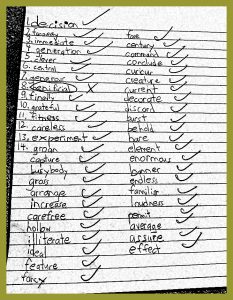 1 decision
immediate
generation
clever
central
8. benificial
9. finally
10. grateful
11. fitness
12. careless
13. experiment
14. groan
capture
busybody
gross
arrange
increase
carefree
hollow
illiterate
ideal
feature
century
command
conclude
creature
current
decorate
burst
behold
bare
element
enormous
banner
endless
familiar
loudness
permit
average
assure
effect